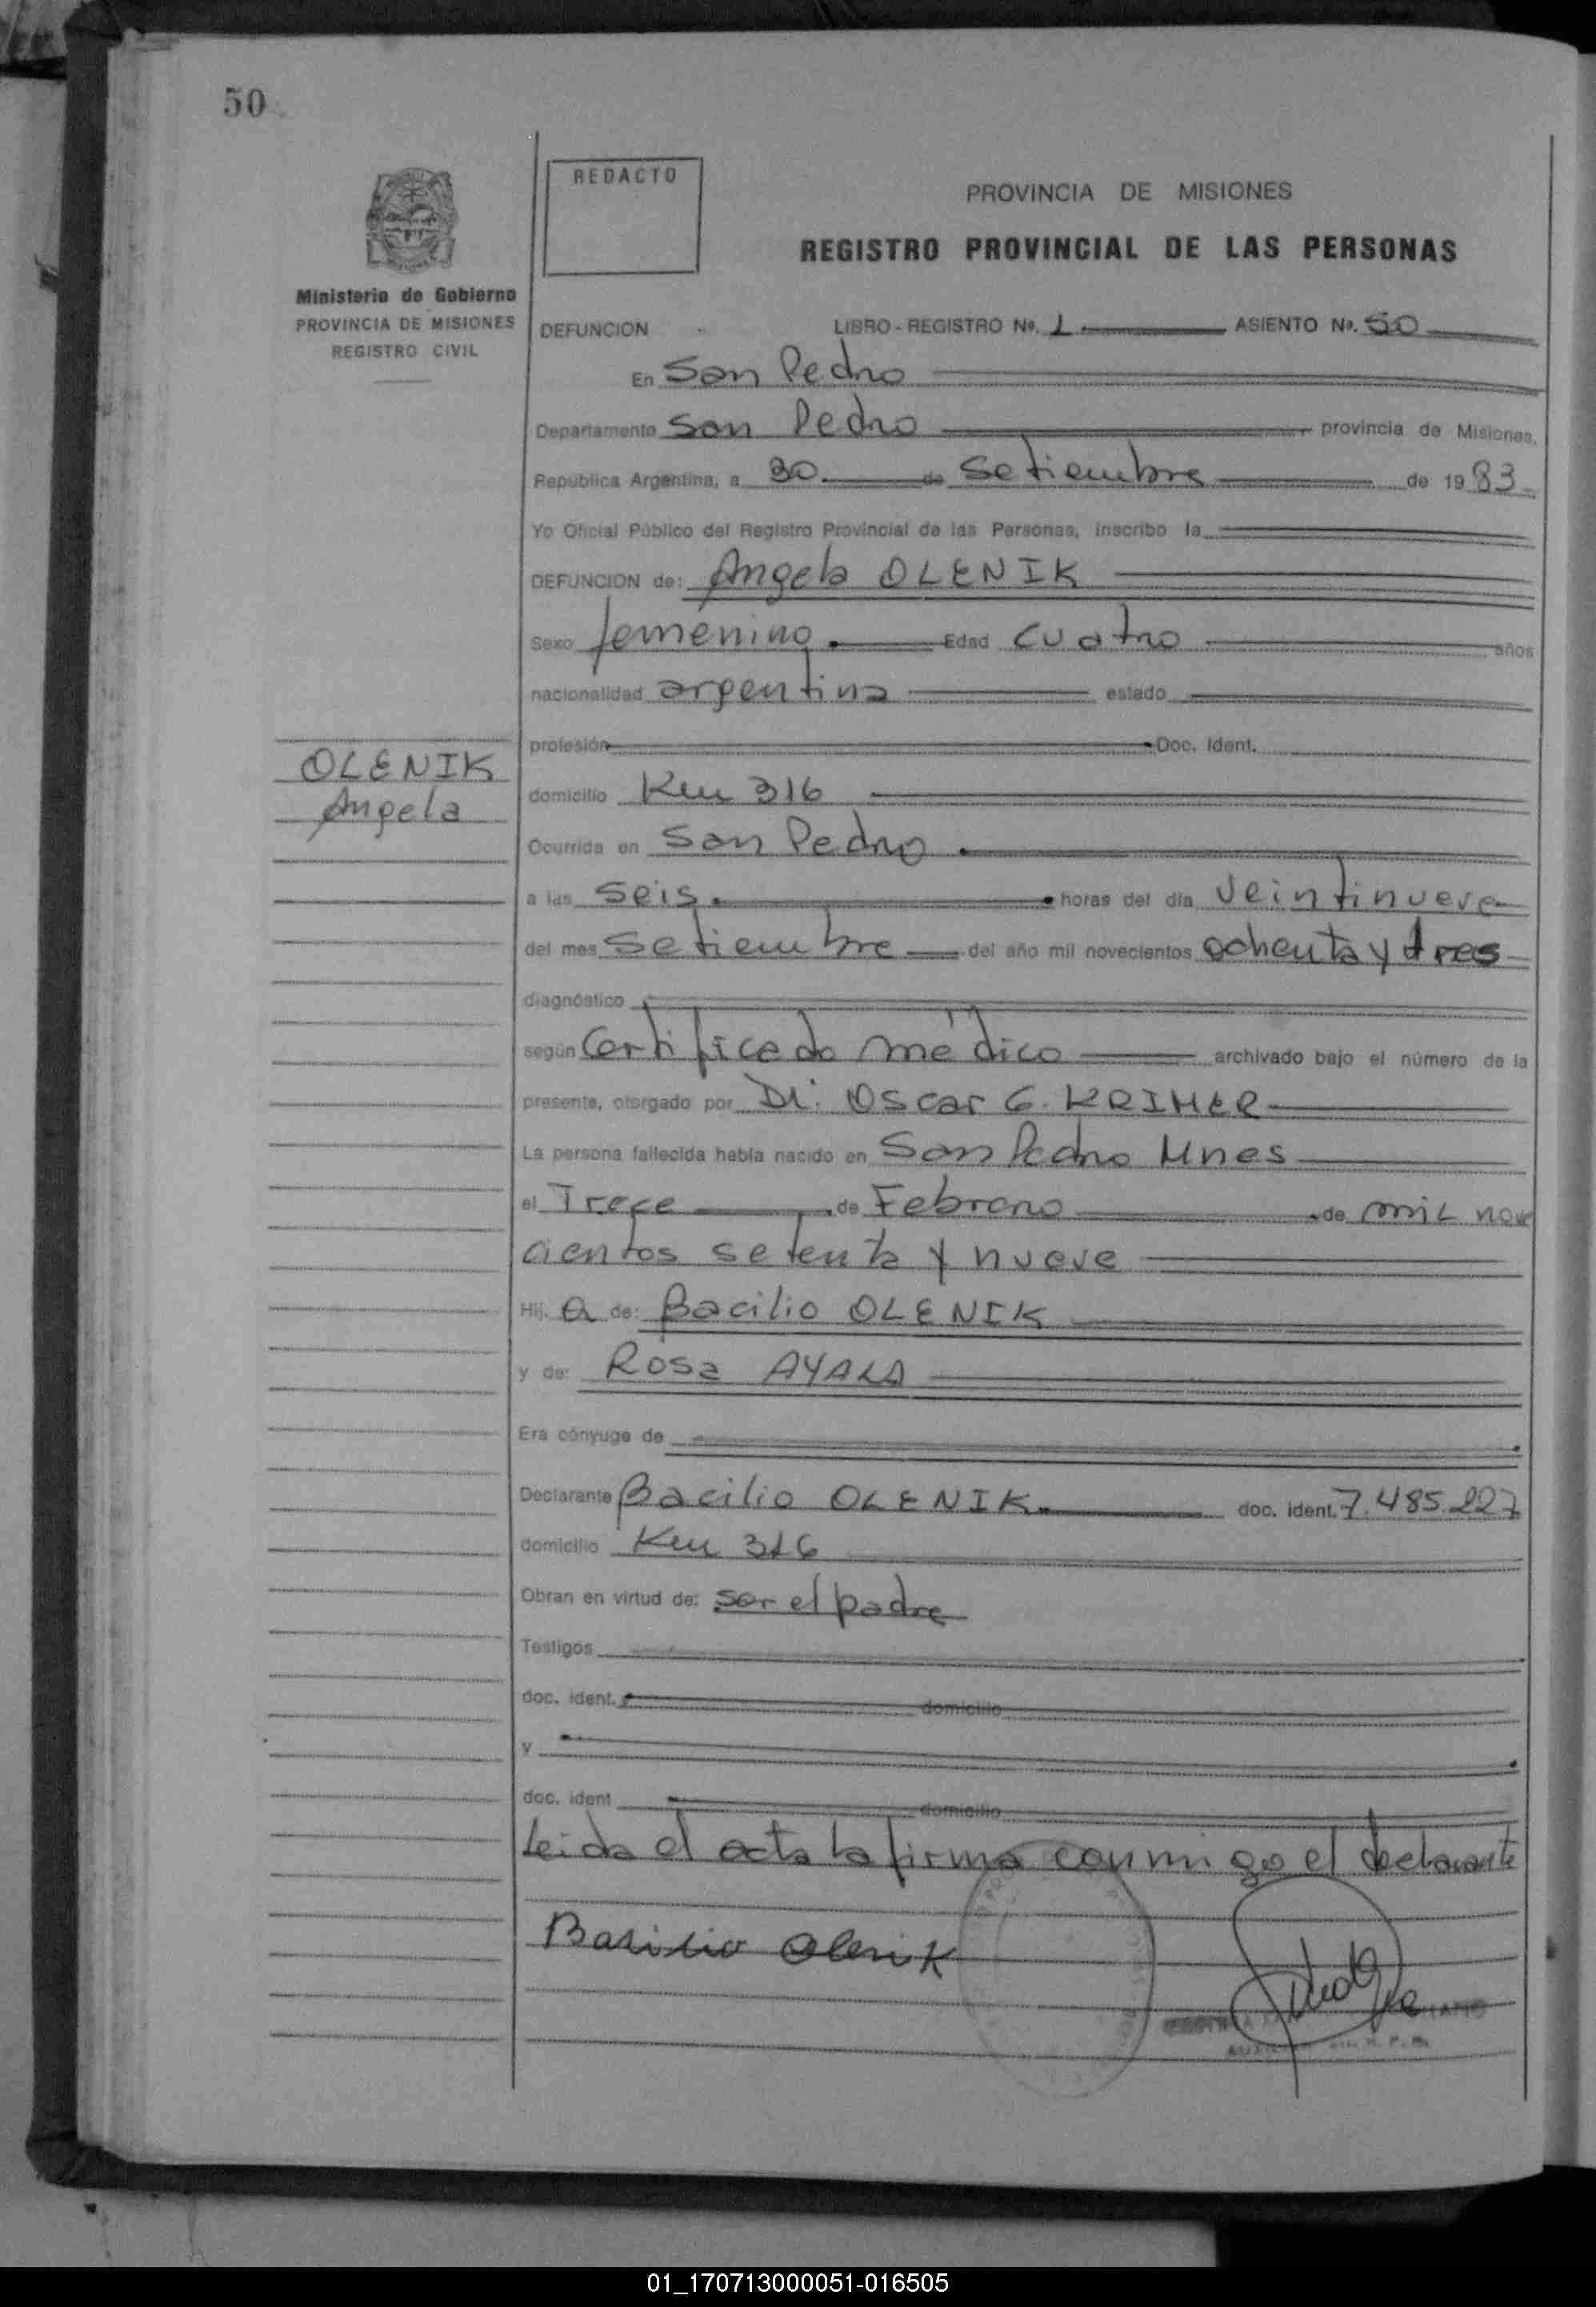 50
REDACTO
PROVINCIA DE MISIONES
REGISTRO PROVINCIAL DE LAS PERSONAS
Ministerio de Gobierno
PROVINCIA DE MISIONES
REGISTRO CIVIL
DEFUNCION LIBRO - REGISTRO No. 1 ASIENTO No. 50
En San Pedro
Departamento San Pedro provincia de Misiones.
Republica Argentina, a 30 de Setiembre de 1983.
Yo Oficial Público del Registro Provincial de las Personas, inscribo la
DEFUNCION de: Angela OLENIK
Sexo femenino. Edad cuatro años
nacionalidad argentina estado
profesión Doc. Ident.
OLENIK
Angela
domicilio Km 316
Ocurrida en San Pedro
a las seis. horas del día veintinueve
del mes setiembre del año mil novecientos ochenta y tres
diagnóstico
según Certificado médico archivado bajo el número de la
presente, otorgado por Dr. Oscar G. KRIMER
La persona fallecida había nacido en San Pedro Mnes
el Trece de Febrero de mil nove
cientos setenta y nueve
Hij. a de: Bacilio OLENIK
y de: Rosa AYALA
Era cónyuge de
Declarante Bacilio OLENIK. doc. ident. 7.485.227
domicilio Km 316
Obran en virtud de: ser el padre
Testigos
doc. ident. domicilio
y
doc. ident domicilio
Leida el acta la firma conmigo el declarante
Basilio Olenik
01_170713000051-016505